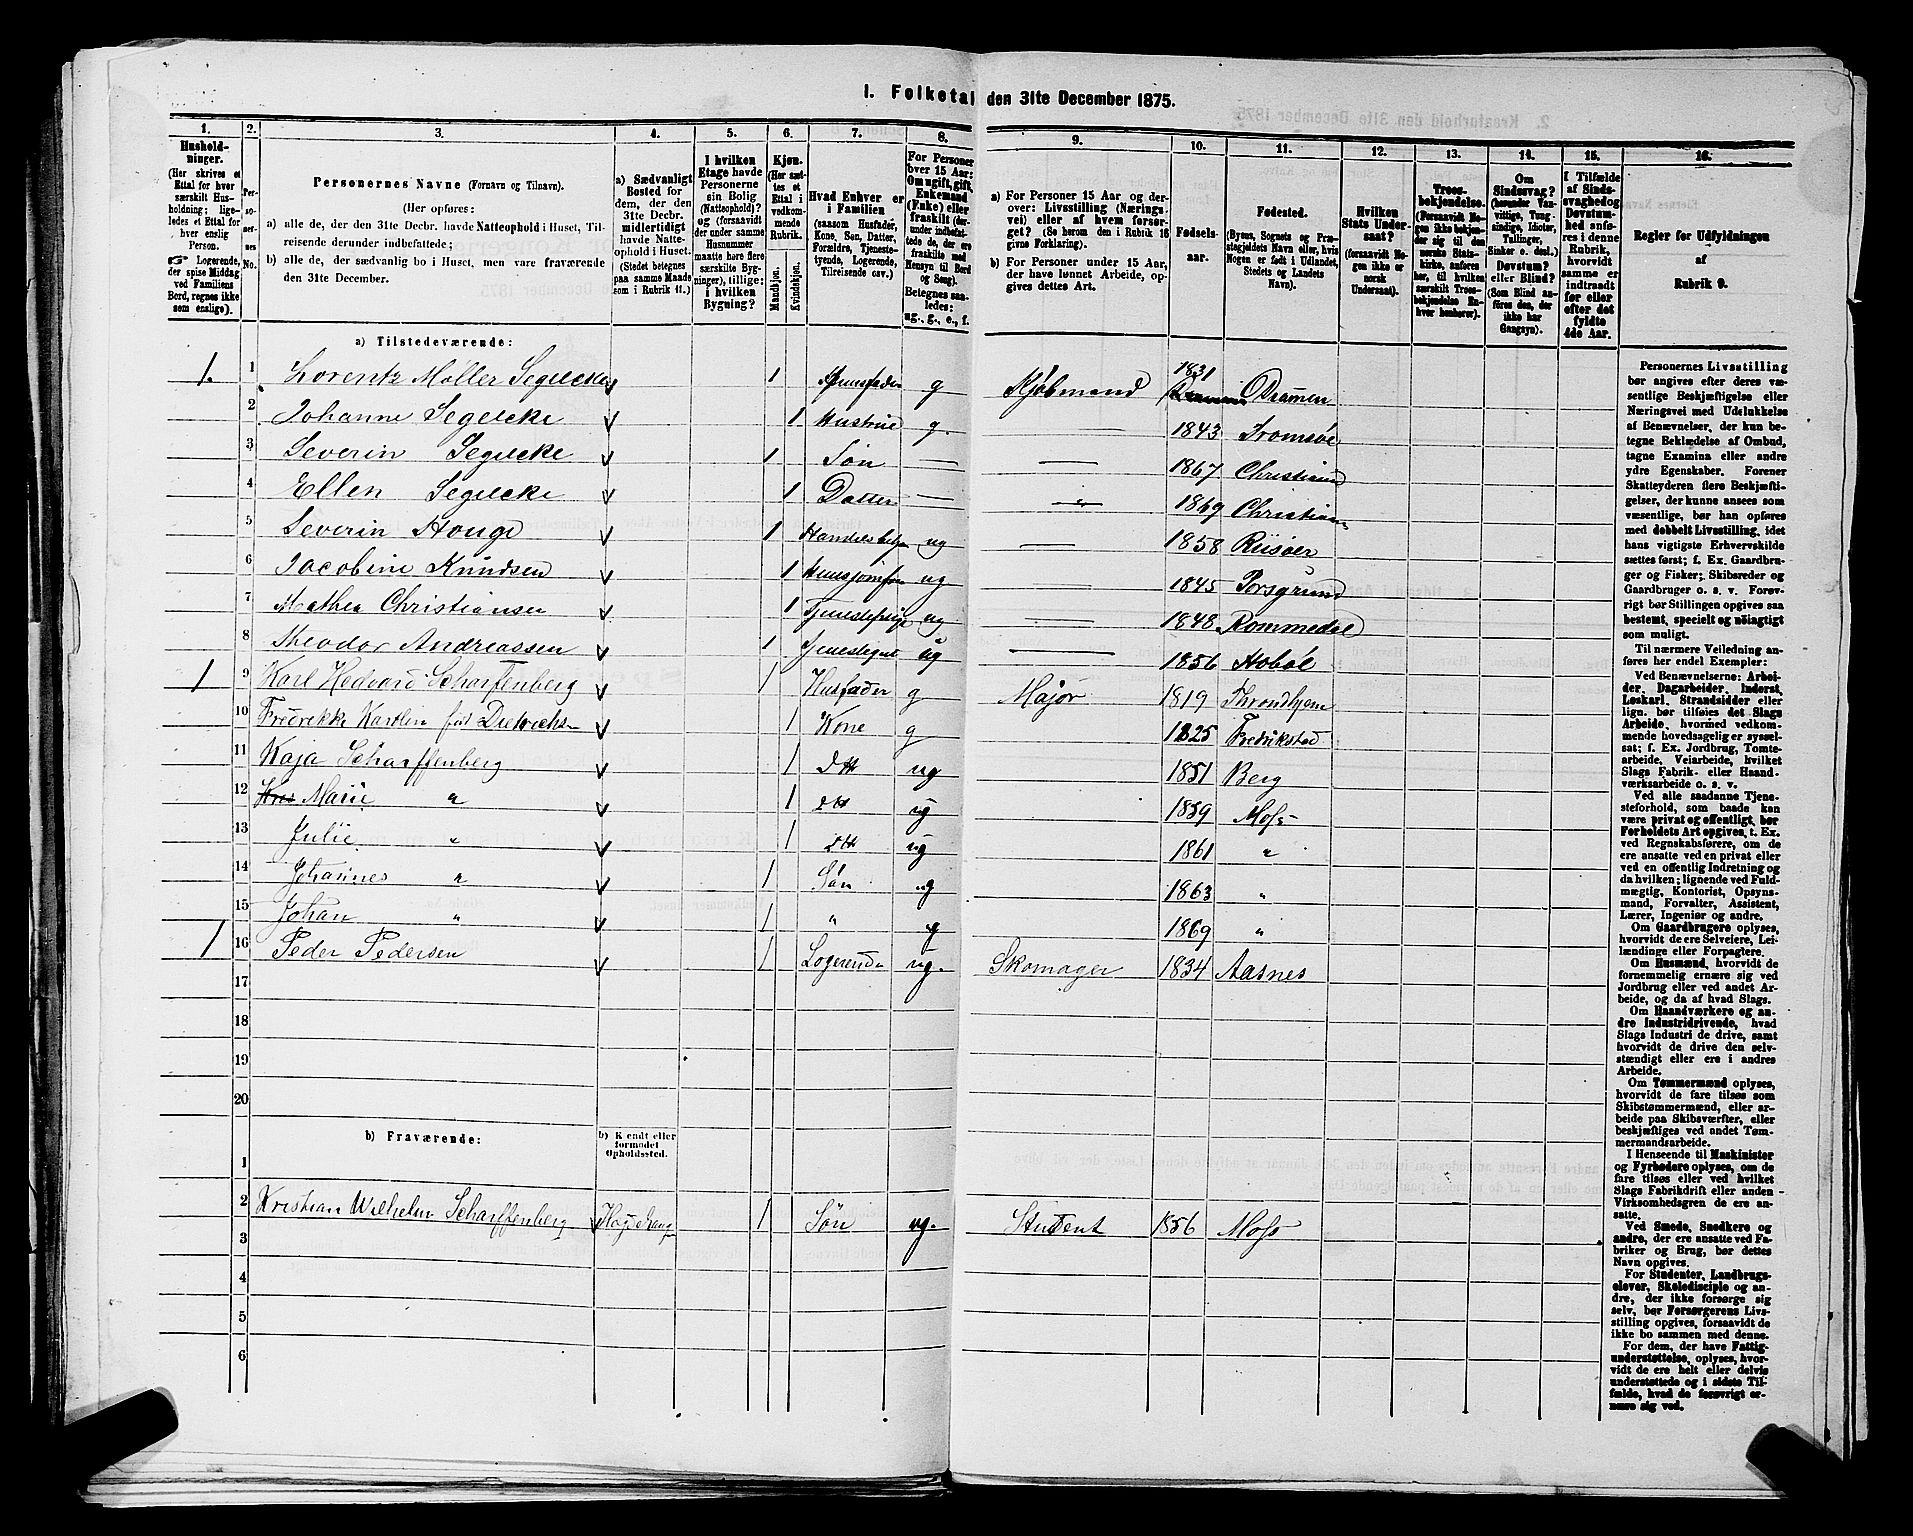 1. Folketal den 31te December 1875.
1. 2. 3. 4. 5. 6. 7. 8. 9. 10. 11. 12. 13. 14. 15. 16.
Hushold-
ninger.
(Her skrives et
Ettal for hver
særskilt Hus-
holdning; lige-
ledes et Ettal for
hver enslig
Person.
Logerende,
der spise Middag
ved Familiens
Bord, regnes ikke
som enslige).
Per-
so-
ner-
nes
No.
Personernes Navne (Fornavn og Tilnavn).
(Her opføres:
a) alle de, der den 31te Decbr. havde Natteophold i Huset, Til-
reisende derunder indbefattede;
b) alle de, der sædvanlig bo i Huset, men vare fraværende
den 31te December.
a) Sædvanligt
Bosted for
dem, der den
31te Decbr.
midlertidigt
havde Natte-
ophold i Huset.
(Stedet betegnes
paa samme Maade
som i Rubrik 11.)
I hvilken
Etage havde
Personerne
sin Bolig
(Natteophold)?
og (forsaavidt
der under samme
Husnummer
maatte høre flere
særskilte Byg-
ninger), tillige:
i hvilken
Bygning?
Kjøn.
(Her sæt-
tes et
Ettal i
vedkom-
mende
Rubrik.
Mandkjøn.
Kvindekjøn.
Hvad Enhver er
i Familien
(saasom Husfader,
Kone, Søn, Datter,
Forældre, Tjeneste-
tyende, Logerende,
Tilreisende osv.)
For Personer
over 15 Aar:
Om ugift, gift,
Enkemand
(Enke) eller
fraskilt (der-
under indbefat-
tede de, der ere
fraskilte med
Hensyn til Bord
og Seng).
Betegnes saa-
ledes:
ug., g., e., f.
a) For Personer 15 Aar og der-
over: Livsstilling (Nærings-
vei) eller af hvem forsør-
get? (Se herom den i Rubrik 16
givne Forklaring).
b) For Personer under 15 Aar,
der have lønnet Arbeide, op-
gives dettes Art.
Fødsels-
aar.
Fødested.
(Byens, Sognets og Præ-
stegjeldets Navn eller, hvis
Nogen er født i Udlandet,
Stedets og Landets
Navn).
Hvilken
Stats Under-
saat?
(forsaavidt No-
gen ikke er
norsk
Undersaat).
Troes-
bekjendelse.
(Forsaavidt No-
gen ikke bekjen-
der sig til den
norske Stats-
kirke, anføres
her, til hvilken
særskilt Troes-
bekjendelse En-
hver henhører).
Om
Sindssvag?
(herunder Van-
vittige, Tung-
sindige, Idioter,
Tullinger,
Sinker o. desl.)
Døvstum?
eller Blind?
(Som Blind an-
føres den, der
ikke har
Gangsyn).
I Tilfælde
af Sinds-
svaghed og
Døvstum-
hed anfø-
res i denne
Rubrik,
hvorvidt
samme er
indtraadt
før eller
efter det
fyldte
4de Aar.
Regler for Udfyldningen
af
Rubrik 9.
a) Tilstedeværende:
1. 1 Lorentz Møller Segelcke 1 Huusfader g Kjøbmand 1831 Dramen
2 Johanne Segelcke 1 Hustrue g. — 1843 Tromsøe
3 Severin Segelcke 1 Søn — — 1867 Christiania
4 Ellen Segelcke 1 Datter — " 1869 Christian
5 Severin Houge 1 ug — 1858 Riisøer
6 Jacobine Knudsen 1 Huusjomfru ug — 1845 Porsgrund
7 Mathea Christiansen 1 Tjenestepige ug — 1848 Rommedal
8 Theodor Andreassen 1 ug — 1856 Hobøl
1 9 Karl Hedvard Scharffenberg 1 Husfader g Major 1819 Throndhjem
10 Fredrikke født Dietrichs 1 Kone g 1825 Fredrikstad
11 Kaja Scharffenberg 1 Dtt ug 1851 Berg
12 Marie " 1 Dtt ug 1859 Moss
13 Julie " 1 Dtt ug 1861 "
14 Johannes " 1 Søn ug 1863 "
15 Johan " 1 " g 1869 "
1 16 Peder Pedersen 1 Logerende ug. Skomager 1834 Aasnes
17
18
19
20
b) Fraværende:
b) Kjendt eller
formodet
Opholdssted.
1
2 Kristian Wilhelm Scharffenberg 1 Søn ug. Student 1856 Moss
3
4
5
6
Personernes Livsstilling
bør angives efter deres væ-
sentlige Beskjæftigelse eller
Næringsvei med Udelukkelse
af Benævnelser, der kun be-
tegne Beklædelse af Ombud,
tagne Examina eller andre
ydre Egenskaber. Forener
Skatteyderen flere Beskjæfti-
gelser, der kunne ansees som
væsentlige, bør han opføres
med dobbelt Livsstilling, idet
hans vigtigste Erhvervskilde
sættes først; f. Ex. Gaardbru-
ger og Fisker; Skibsreder og
Gaardbruger o. s. v. Forøv-
rigt bør Stillingen opgives saa
bestemt, specielt og nøiagtigt
som muligt.
Til nærmere Veiledning an-
føres her endel Exempler:
Ved Benævnelserne: Arbei-
der, Dagarbeider, Inderst,
Løskarl, Strandsidder eller
lign. bør tilføies det Slags
Arbeide, hvormed vedkom-
mende hovedsagelig er syssel-
sat; f. Ex. Jordbrug, Tomte-
arbeide, Veiarbeide, hvilket
Slags Fabrik- eller Haand-
værksarbeide o. s. v.
Ved alle saadanne Tjene-
steforhold, som baade kan
være privat og offentligt, bør
Forholdets Art opgives, t. Ex.
ved Regnskabsførere, om de
ere ansatte ved en privat eller
en offentlig Indretning og da
da hvilken; lignende ved Fuld-
mægtig, Kontorist, Opsyns-
mand, Forvalter, Assistent,
Lærer, Ingeniør og andre.
Om Gaardbrugere oplyses,
hvorvidt de ere Selveiere, Lei-
lændinge eller Forpagtere.
Om Husmænd, hvorvidt de
fornemmelig ernære sig ved
Jordbrug eller ved andet Ar-
beide, og da af hvad Slags.
Om Haandværkere og an-
dre Industridrivende, hvad
Slags Industri de drive, samt
hvorvidt de drive den selv-
stændigt eller ere i andres
Arbeide.
Om Tømmermænd oplyses,
hvorvidt de fare tilsøs som
Skibstømmermænd, eller ar-
beide paa Skibsværfter, eller
beskjæftiges ved andet Tøm-
mermandsarbeide.
I Henseende til Maskinister
og Fyrbødere oplyses, om de
fare tilsøs eller ved hvilket
Slags Fabrikdrift eller anden
Virksomhedsgren de ere an-
satte.
Ved Smede, Snedkere og
andre, der ere ansatte ved Fa-
briker og Brug, bør dettes
Navn opgives.
For Studenter, Landbrugs-
elever, Skoledisciple og an-
dre, der ikke forsørge sig
selv, bør Forsørgerens Livs-
stilling opgives, forsaavidt de
ikke bo sammen med denne.
For dem, der have Fattig-
understøttelse, oplyses, hvor-
vidt de ere helt eller delvis
understøttede og i sidste Til-
fælde, hvad de forøvrigt er-
nære sig ved.